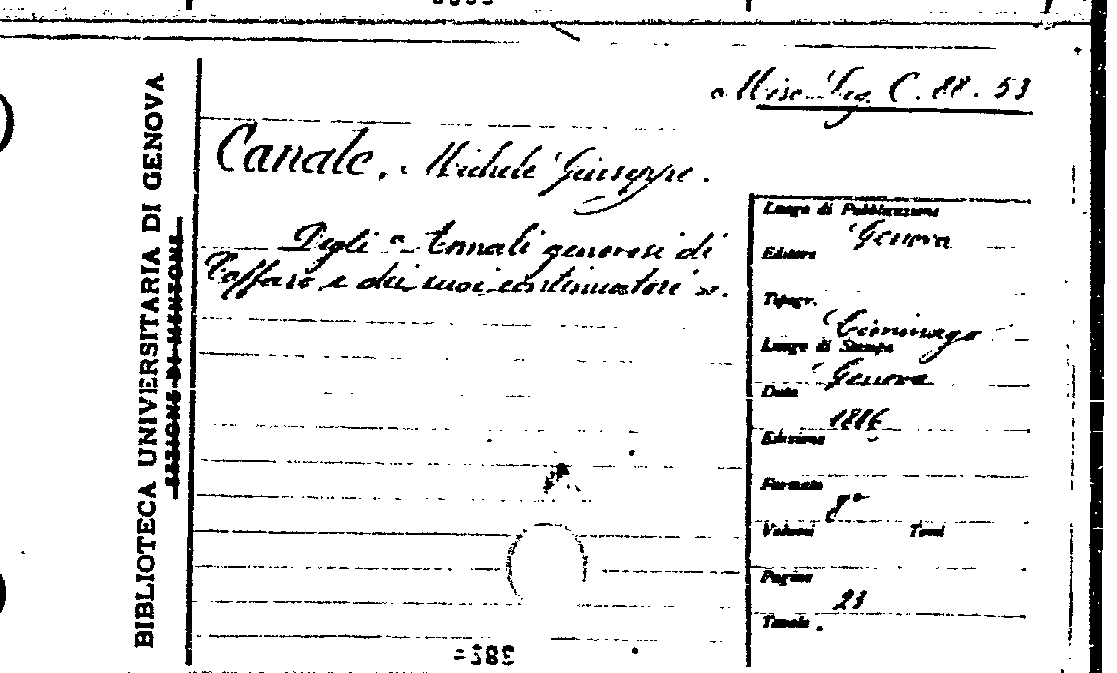 Misc. Lig. C. 88. 53
BIBLIOTECA UNIVERSITARIA DI GENOVA
Canale, Michele Giuseppe.
Degli "Annali genovesi di
Caffaro e dei suoi continuatori".
Luogo di Pubblicazione
Genova
Editore
Tipogr.
Ciminago
Luogo di Stampa
Genova
Data
Edizione
Formato
8°
Volumi Tomi
Pagine
23
Tavole